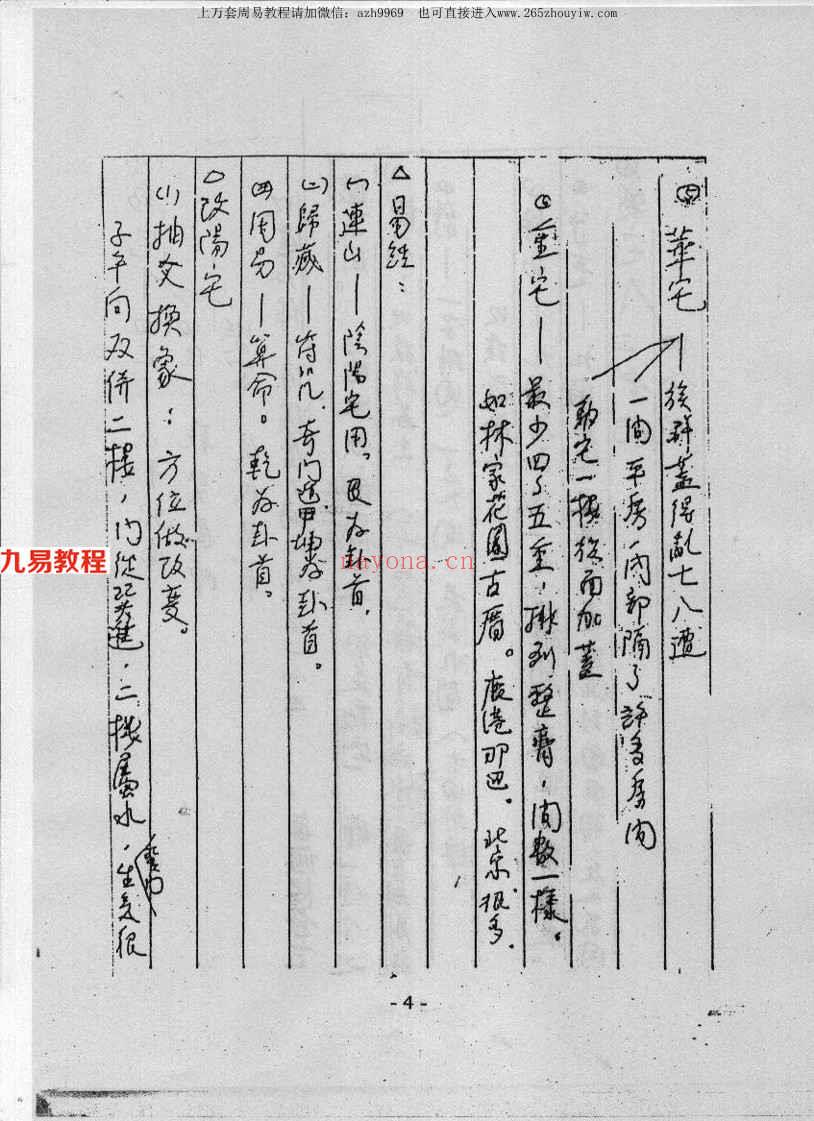 上万套周易教程请加微信：azh9969 也可直接进入www.265zhouyiw.com
㈣華宅—族群蓋得亂七八遭
一间平房，内部隔了許多房间
宅一樓後面加蓋
㈤重宅—最少四、五重，排列整齊，间数一樣。
如林家花園古厝。鹿港那边。北京很多.
△易經：
㈠連山—陰陽宅用。艮为卦首.
㈡歸藏—符咒.奇门遁甲坤为卦首。
㈣周易—算命。乾为卦首。
△改陽宅
⑴抽爻換象：方位做改变。
子午向双併二樓，内從巽進，二樓屬水，生氣很
九易教程
nayona.cn
- 4 -